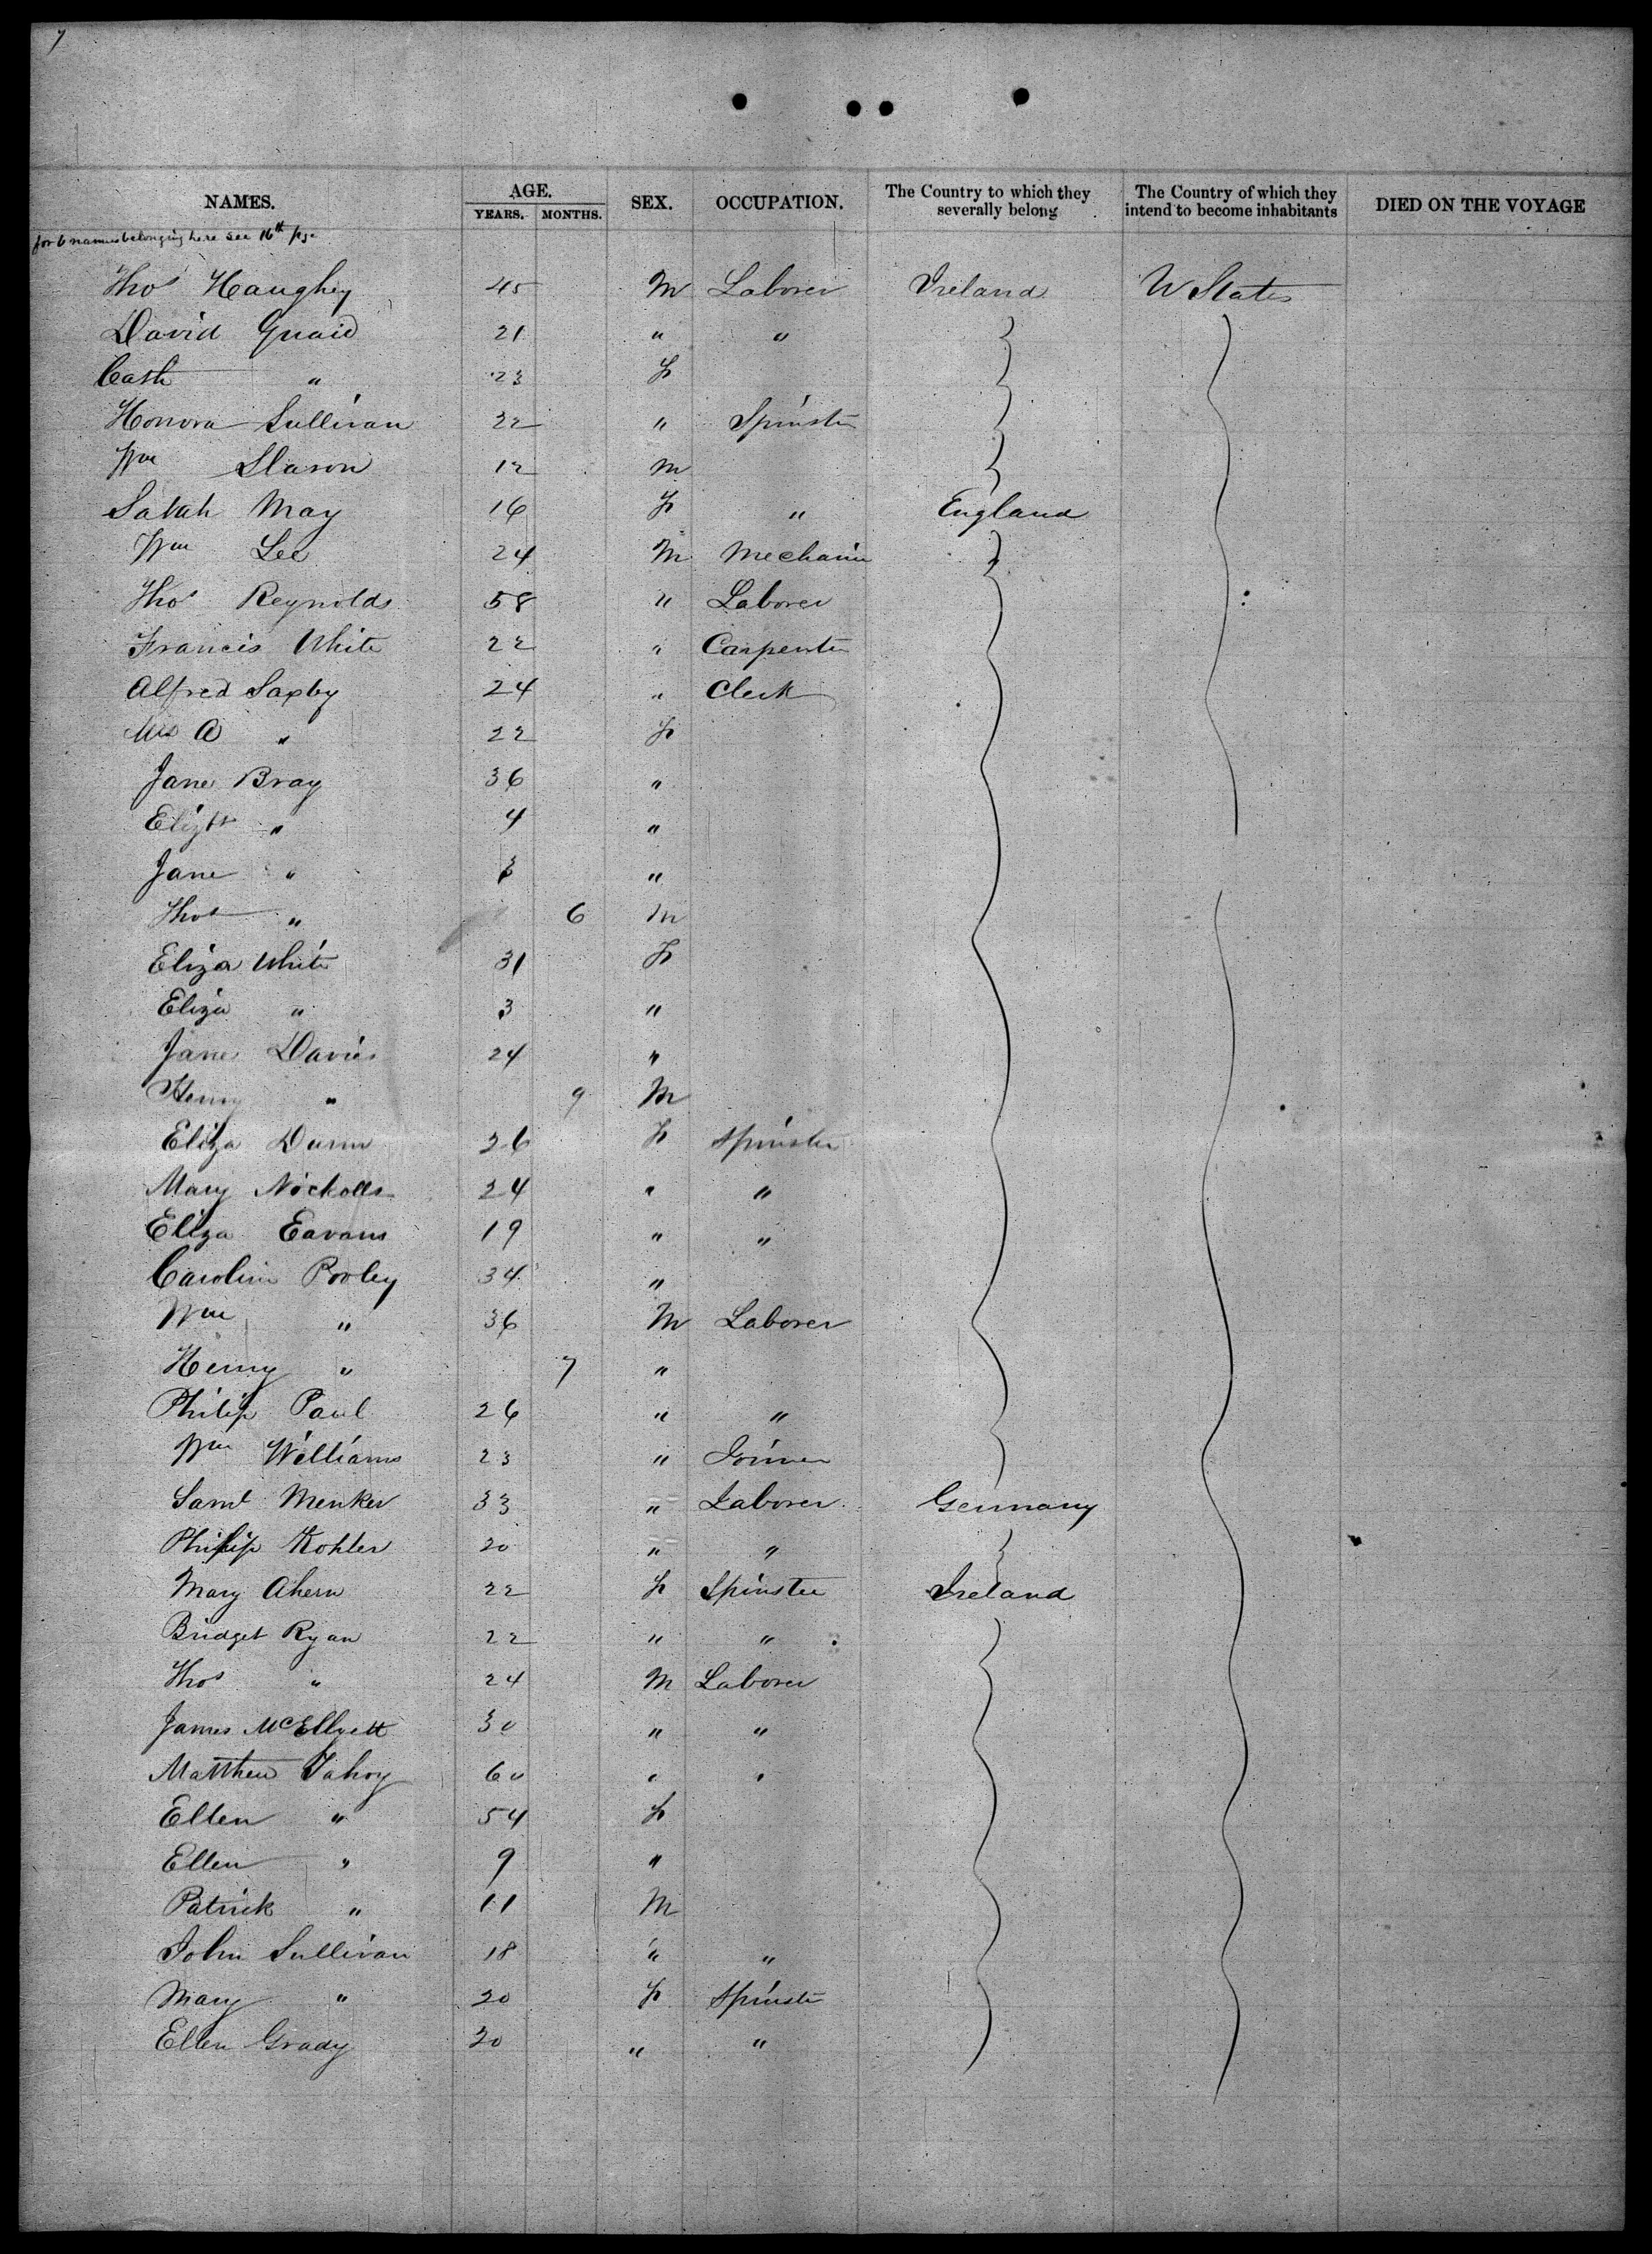 7
NAMES. AGE. YEARS. MONTHS. SEX. OCCUPATION. The Country to which they severally belong The Country of which they intend to become inhabitants DIED ON THE VOYAGE
for 6 names belonging here see 16th pge
Thos Haughey 45 M Laborer Ireland U States
David Quaid 21 " "
Cath " 23 F
Honora Sullivan 22 " Spinster
Wm Slason 12 M
Sarah May 16 F " England
Wm Lee 24 M Mechanic
Thos Reynolds 58 " Laborer
Francis White 22 " Carpenter
Alfred Saxby 24 " Clerk
Mrs A " 22 F
Jane Bray 36 "
Elizth " 4 "
Jane " 3 "
Thos " 6 M
Eliza White 31 F
Eliza " 3 "
Jane Davies 24 "
Henry " 9 M
Eliza Dunn 26 F Spinster
Mary Nickolls 24 " "
Eliza Eavans 19 " "
Carolin Pooley 34 "
Wm " 36 M Laborer
Henry " 7 "
Philip Paul 26 " "
Wm Williams 23 " Joiner
Saml Menker 33 " Laborer Germany
Philip Kohler 20 " "
Mary Ahern 22 F Spinster Ireland
Bridget Ryan 22 " "
Thos " 24 M Laborer
James McEllyett 30 " "
Matthew Fahoy 60 " "
Ellen " 54 F
Ellen " 9 "
Patrick " 11 M
John Sullivan 18 " "
Mary " 20 F Spinster
Ellen Grady 20 " "